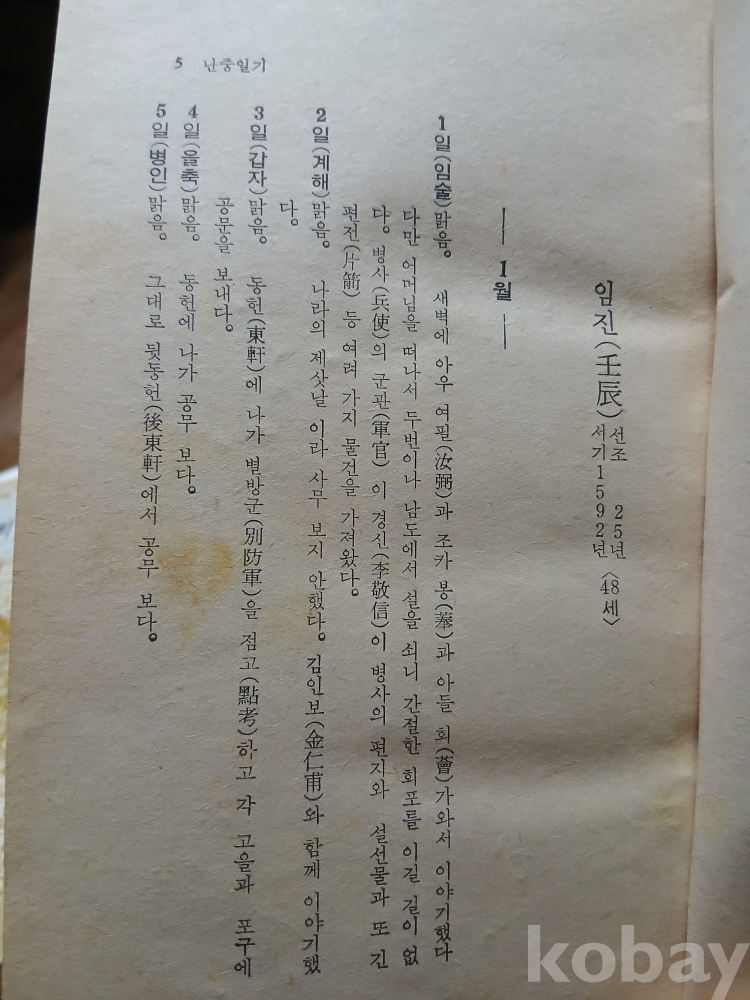 5 난중일기
임진(壬辰) 선조 25년 서기 1592년 〈48세〉
── 1월 ──
1일(임술) 맑음. 새벽에 아우 여필(汝弼)과 조카 봉(菶)과 아들 회(薈)가와서 이야기했다
다만 어머님을 떠나서 두번이나 남도에서 설을 쇠니 간절한 회포를 이길 길이 없
다. 병사(兵使)의 군관(軍官) 이 경신(李敬信)이 병사의 편지와 설선물과 또 긴
편전(片箭) 등 여러 가지 물건을 가져왔다.
2일(계해) 맑음. 나라의 제삿날 이라 사무 보지 안했다. 김인보(金仁甫)와 함께 이야기했
다.
3일(갑자) 맑음. 동헌(東軒)에 나가 별방군(別防軍)을 점고(點考)하고 각 고을과 포구에
공문을 보내다.
4일(을축) 맑음. 동헌에 나가 공무 보다.
5일(병인) 맑음. 그대로 뒷동헌(後東軒)에서 공무 보다.
kobay